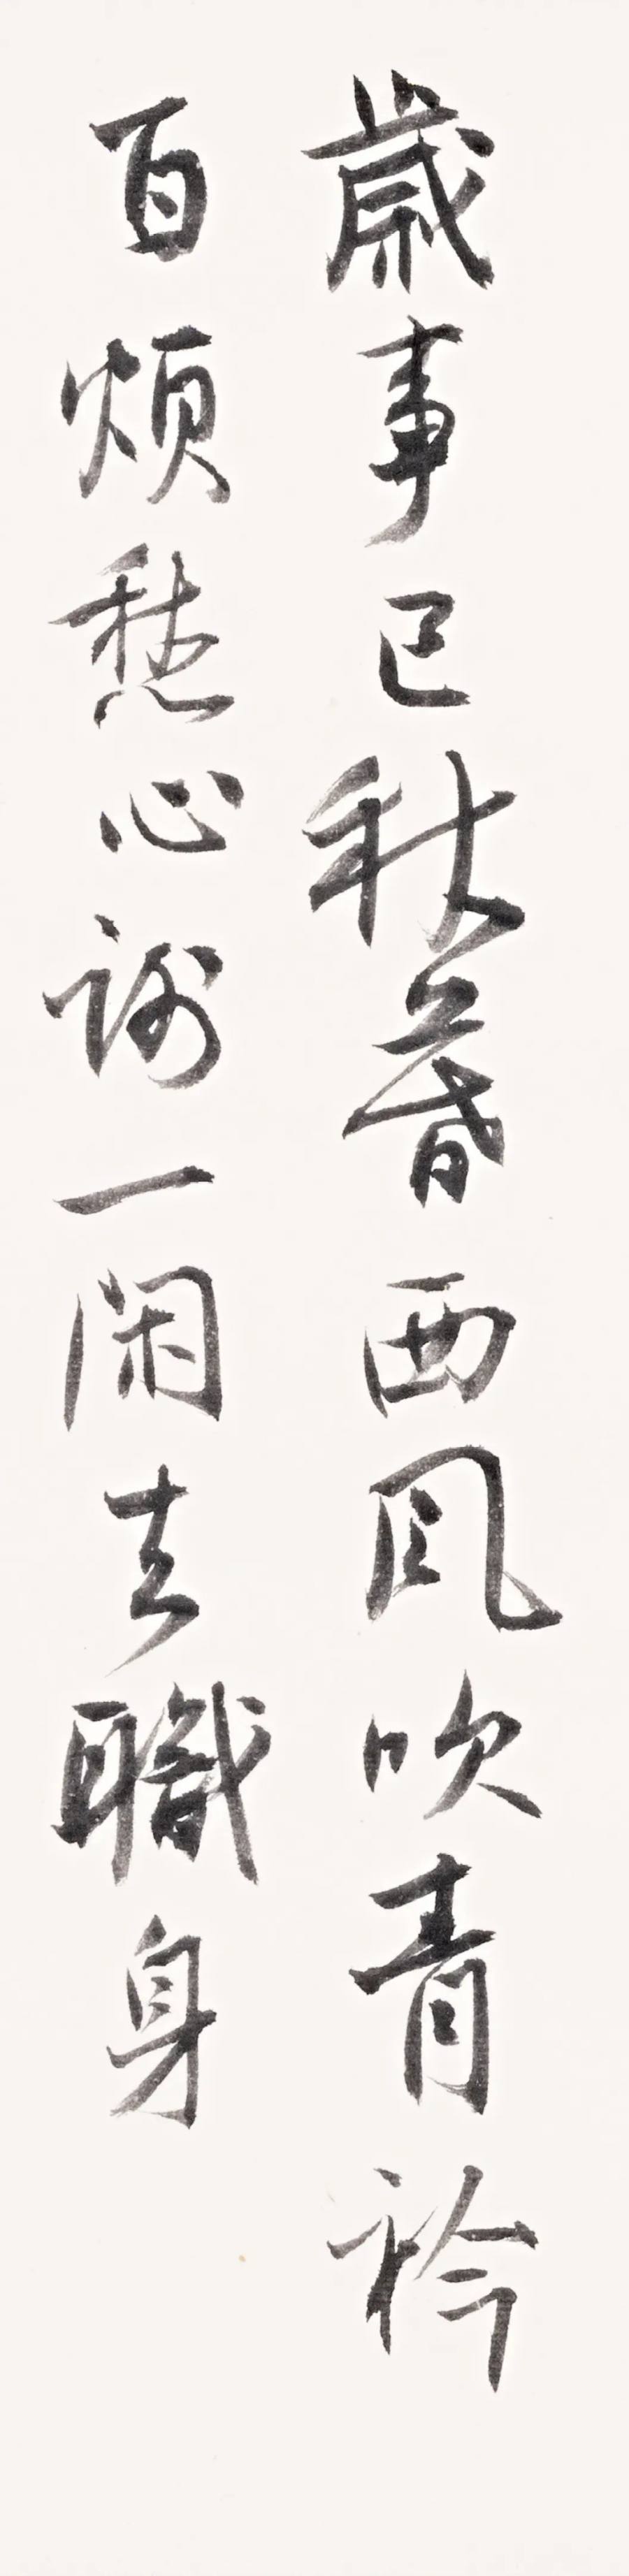 歲事已秋暮西風吹青衿
百煩愁心謝一閑去職身